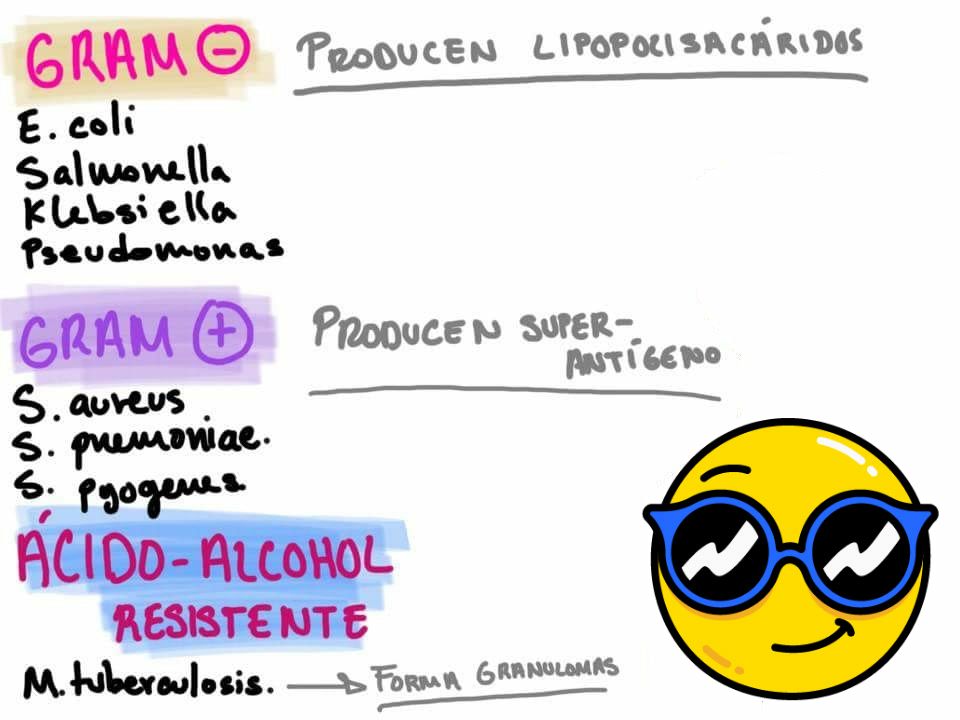 GRAM ⊖ PRODUCEN LIPOPOLISACÁRIDOS
E. coli
Salmonella
Klebsiella
Pseudomonas
GRAM ⊕ PRODUCEN SUPER-
ANTÍGENO
S. aureus
S. pnemoniae.
S. pyogenes
ÁCIDO-ALCOHOL
RESISTENTE
M. tuberculosis. → FORMA GRANULOMAS